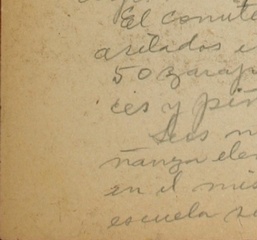 El comite
asilados e
50 zarap
ces y piñ
Los n
ñanza ele
en el mis
escuela s